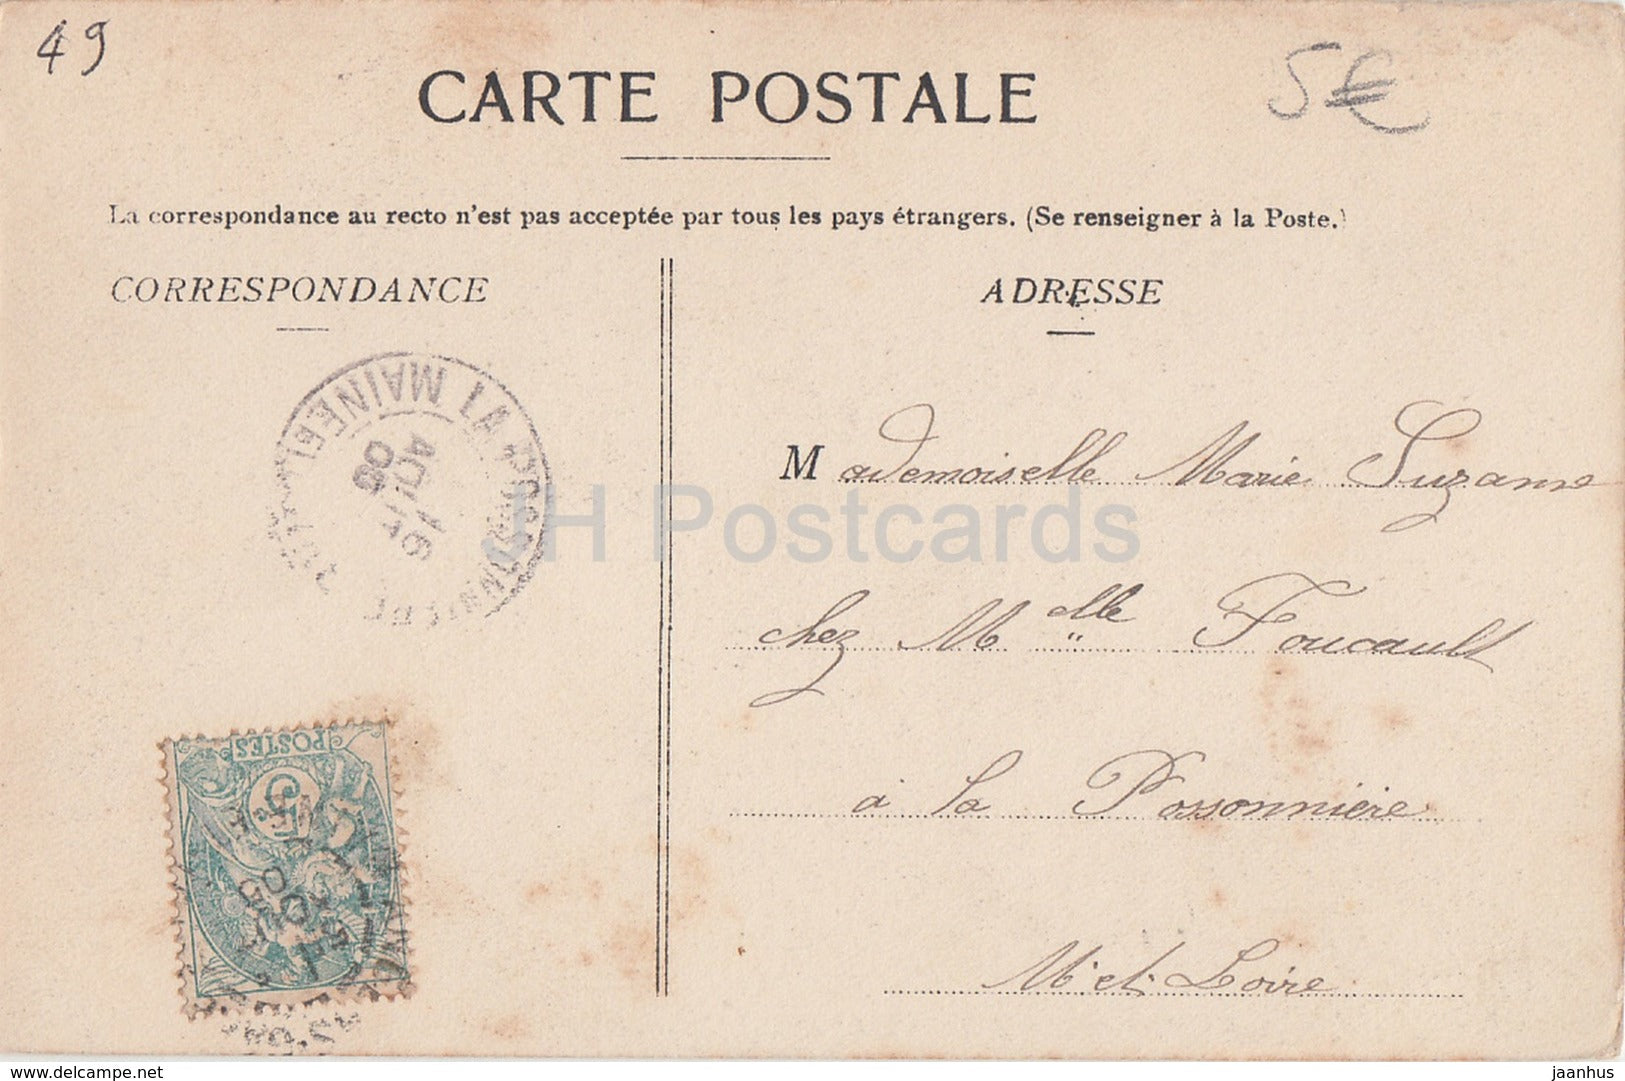 49
CARTE POSTALE
5€
La correspondance au recto n'est pas acceptée par tous les pays étrangers. (Se renseigner à la Poste.)
CORRESPONDANCE
ADRESSE
LA POSSONNIERE
MAINE ET
16
AOUT
Mademoiselle Marie Suzanne
chez Melle Foucault
à la Possonnière
M. et Loire
POSTES
5
JH Postcards
www.delcampe.net
jaanhus